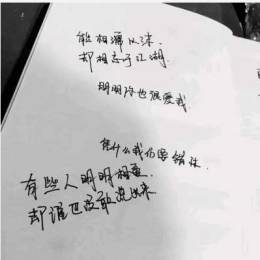 能相濡以沫
却相忘于江湖
明明你也很爱我
凭什么我们要错过
有些人明明相爱
却谁也没敢说出来